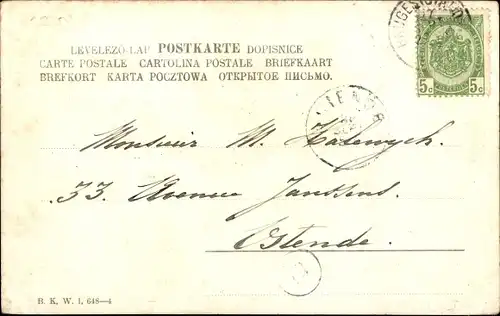 LEVELEZŐ-LAP POSTKARTE DOPISNICE
CARTE POSTALE CARTOLINA POSTALE BRIEFKAART
BREFKORT KARTA POCZTOWA ОТКРЫТОЕ ПИСЬМО.
5c 5c
Monsieur M.
33. Avenue Janssens.
Ostende.
B. K. W. I, 648—4